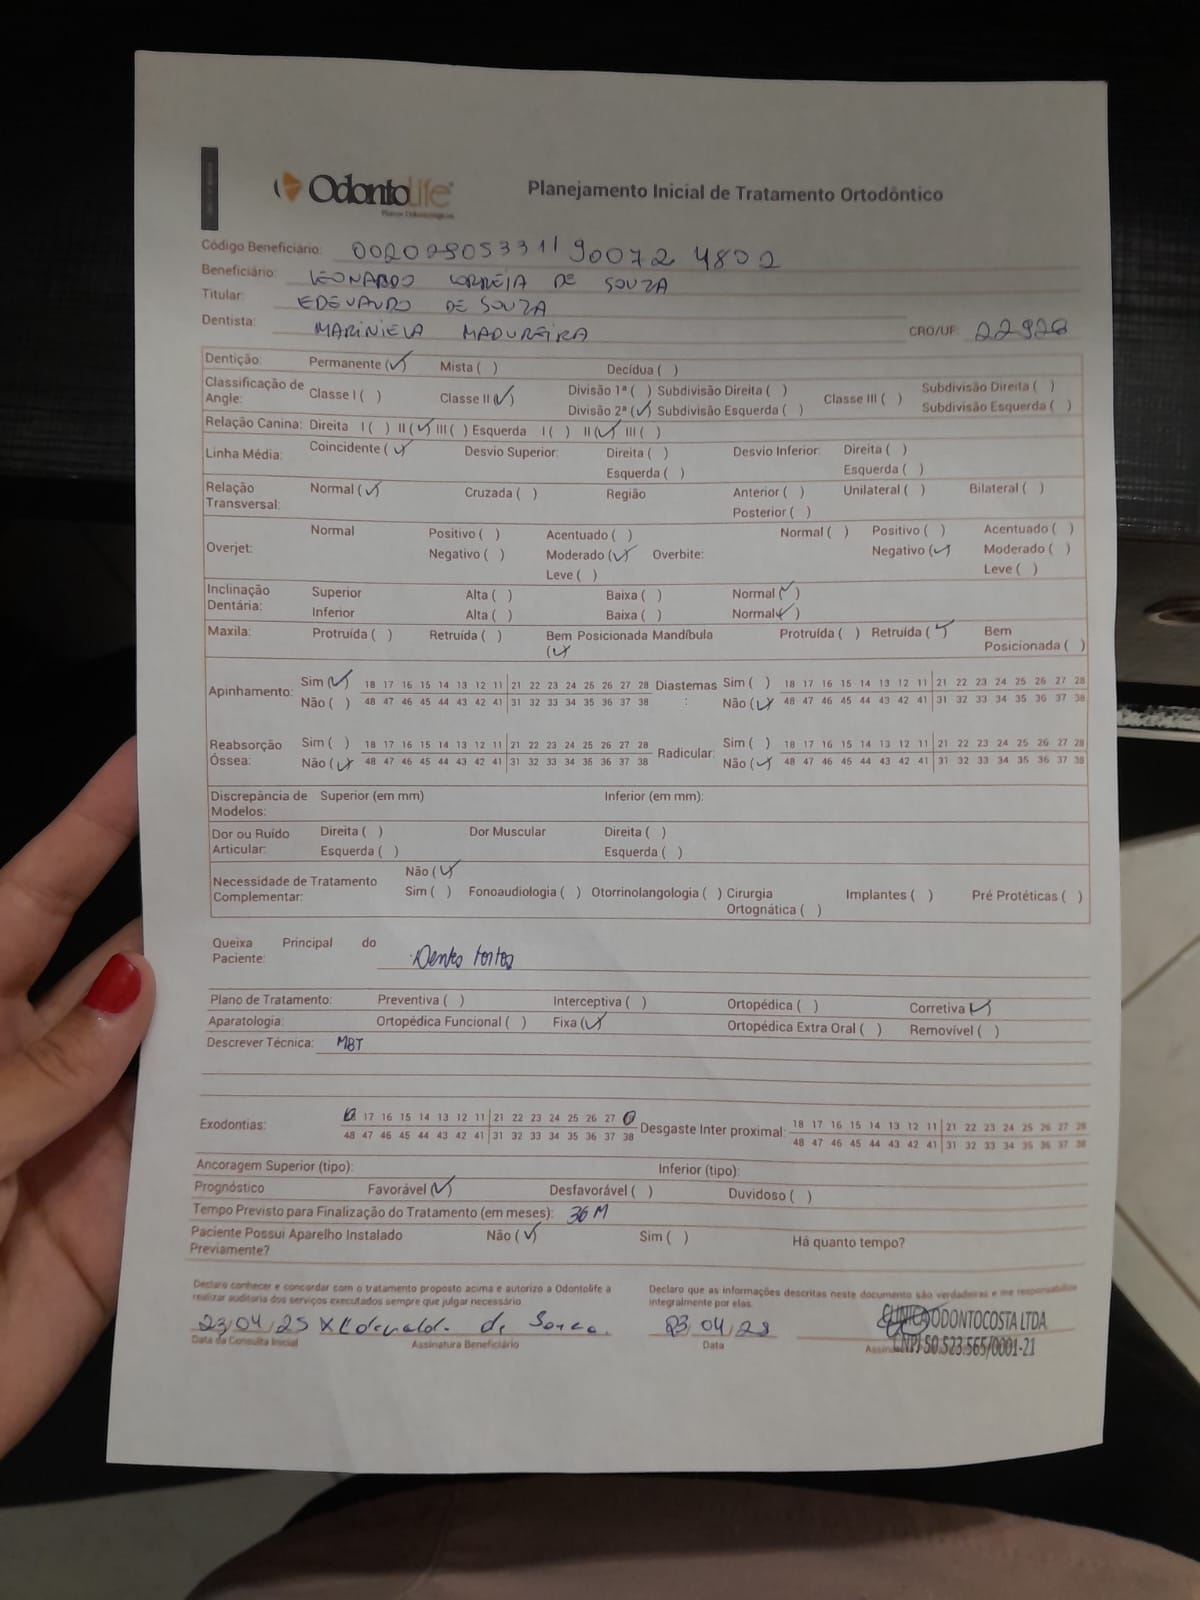 Odontolife
Planos Odontológicos
Planejamento Inicial de Tratamento Ortodôntico
Código Beneficiário: 00202805331190072 4802
Beneficiário: LEONARDO CORREIA DE SOUZA
Titular: EDEVALDO DE SOUZA
Dentista: MARINIELA MADUREIRA CRO/UF: 22928
Dentição: Permanente (✓) Mista ( ) Decídua ( )
Classificação de Angle: Classe I ( ) Classe II (✓) Divisão 1ª ( ) Subdivisão Direita ( ) Classe III ( ) Subdivisão Direita ( )
Divisão 2ª (✓) Subdivisão Esquerda ( ) Subdivisão Esquerda ( )
Relação Canina: Direita I ( ) II (✓) III ( ) Esquerda I ( ) II (✓) III ( )
Linha Média: Coincidente (✓) Desvio Superior: Direita ( ) Desvio Inferior: Direita ( )
Esquerda ( ) Esquerda ( )
Relação Transversal: Normal (✓) Cruzada ( ) Região Anterior ( ) Unilateral ( ) Bilateral ( )
Posterior ( )
Overjet: Normal Positivo ( ) Acentuado ( ) Normal ( ) Positivo ( ) Acentuado ( )
Negativo ( ) Moderado (✓) Overbite: Negativo (✓) Moderado ( )
Leve ( ) Leve ( )
Inclinação Dentária: Superior Alta ( ) Baixa ( ) Normal (✓)
Inferior Alta ( ) Baixa ( ) Normal (✓)
Maxila: Protruída ( ) Retruída ( ) Bem Posicionada (✓) Mandíbula Protruída ( ) Retruída (✓) Bem Posicionada ( )
Apinhamento: Sim (✓) 18 17 16 15 14 13 12 11 21 22 23 24 25 26 27 28 Diastemas: Sim ( ) 18 17 16 15 14 13 12 11 21 22 23 24 25 26 27 28
Não ( ) 48 47 46 45 44 43 42 41 31 32 33 34 35 36 37 38 Não (✓) 48 47 46 45 44 43 42 41 31 32 33 34 35 36 37 38
Reabsorção Óssea: Sim ( ) 18 17 16 15 14 13 12 11 21 22 23 24 25 26 27 28 Radicular: Sim ( ) 18 17 16 15 14 13 12 11 21 22 23 24 25 26 27 28
Não (✓) 48 47 46 45 44 43 42 41 31 32 33 34 35 36 37 38 Não (✓) 48 47 46 45 44 43 42 41 31 32 33 34 35 36 37 38
Discrepância de Modelos: Superior (em mm) Inferior (em mm):
Dor ou Ruído Articular: Direita ( ) Dor Muscular Direita ( )
Esquerda ( ) Esquerda ( )
Necessidade de Tratamento Complementar: Não (✓)
Sim ( ) Fonoaudiologia ( ) Otorrinolangologia ( ) Cirurgia Ortognática ( ) Implantes ( ) Pré Protéticas ( )
Queixa Principal do Paciente: Dentes tortos
Plano de Tratamento: Preventiva ( ) Interceptiva ( ) Ortopédica ( ) Corretiva (✓)
Aparatologia: Ortopédica Funcional ( ) Fixa (✓) Ortopédica Extra Oral ( ) Removível ( )
Descrever Técnica: MBT
Exodontias: 17 16 15 14 13 12 11 21 22 23 24 25 26 27 Desgaste Inter proximal: 18 17 16 15 14 13 12 11 21 22 23 24 25 26 27 28
48 47 46 45 44 43 42 41 31 32 33 34 35 36 37 38 48 47 46 45 44 43 42 41 31 32 33 34 35 36 37 38
Ancoragem Superior (tipo): Inferior (tipo):
Prognóstico Favorável (✓) Desfavorável ( ) Duvidoso ( )
Tempo Previsto para Finalização do Tratamento (em meses): 36 M
Paciente Possui Aparelho Instalado Previamente? Não (✓) Sim ( ) Há quanto tempo?
Declaro conhecer e concordar com o tratamento proposto acima e autorizo a Odontolife a realizar auditoria dos serviços executados sempre que julgar necessário
Declaro que as informações descritas neste documento são verdadeiras e me responsabilizo integralmente por elas.
23/04/25 X Edevaldo de Souza 23/04/25 CLINICA ODONTOCOSTA LTDA
CNPJ 50.523.565/0001-21
Data da Consulta Inicial Assinatura Beneficiário Data